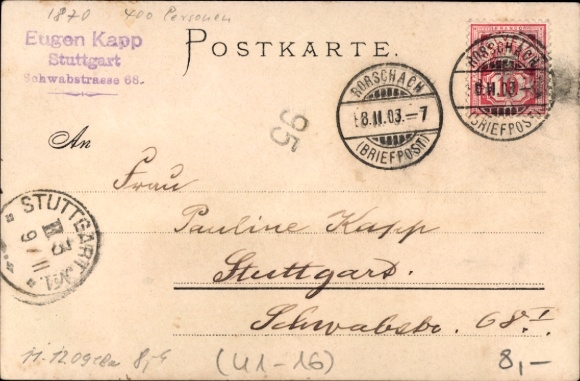 1870 400 Personen
Eugen Kapp
Stuttgart
Schwabstrasse 68.
POSTKARTE.
RORSCHACH
18.II.03.–7
(BRIEFPOST)
RORSCHACH
(BRIEFPOST)
95
An
Frau
Pauline Kapp
Stuttgart.
Schwabstr. 68 I
STUTTGART №1.
(U1-16)
8,-